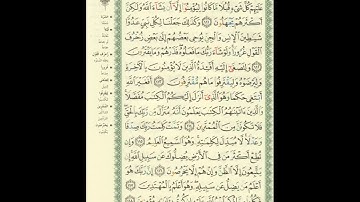 عَلَيْهِمْ كُلَّ شَىْءٍ قُبُلًا مَّا كَانُوا۟ لِيُؤْمِنُوٓا۟ إِلَّآ أَن يَشَآءَ ٱللَّهُ وَلَٰكِنَّ
أَكْثَرَهُمْ يَجْهَلُونَ ١١١ وَكَذَٰلِكَ جَعَلْنَا لِكُلِّ نَبِىٍّ عَدُوًّا
شَيَٰطِينَ ٱلْإِنسِ وَٱلْجِنِّ يُوحِى بَعْضُهُمْ إِلَىٰ بَعْضٍ زُخْرُفَ
ٱلْقَوْلِ غُرُورًا وَلَوْ شَآءَ رَبُّكَ مَا فَعَلُوهُ فَذَرْهُمْ وَمَا يَفْتَرُونَ
١١٢ وَلِتَصْغَىٰٓ إِلَيْهِ أَفْـِٔدَةُ ٱلَّذِينَ لَا يُؤْمِنُونَ بِٱلْءَاخِرَةِ
وَلِيَرْضَوْهُ وَلِيَقْتَرِفُوا۟ مَا هُم مُّقْتَرِفُونَ ١١٣ أَفَغَيْرَ ٱللَّهِ
أَبْتَغِى حَكَمًا وَهُوَ ٱلَّذِىٓ أَنزَلَ إِلَيْكُمُ ٱلْكِتَٰبَ مُفَصَّلًا
وَٱلَّذِينَ ءَاتَيْنَٰهُمُ ٱلْكِتَٰبَ يَعْلَمُونَ أَنَّهُۥ مُنَزَّلٌ مِّن رَّبِّكَ بِٱلْحَقِّ
فَلَا تَكُونَنَّ مِنَ ٱلْمُمْتَرِينَ ١١٤ وَتَمَّتْ كَلِمَتُ رَبِّكَ صِدْقًا
وَعَدْلًا لَّا مُبَدِّلَ لِكَلِمَٰتِهِۦ وَهُوَ ٱلسَّمِيعُ ٱلْعَلِيمُ ١١٥ وَإِن
تُطِعْ أَكْثَرَ مَن فِى ٱلْأَرْضِ يُضِلُّوكَ عَن سَبِيلِ ٱللَّهِ إِن
يَتَّبِعُونَ إِلَّا ٱلظَّنَّ وَإِنْ هُمْ إِلَّا يَخْرُصُونَ ١١٦ إِنَّ رَبَّكَ هُوَ
أَعْلَمُ مَن يَضِلُّ عَن سَبِيلِهِۦ وَهُوَ أَعْلَمُ بِٱلْمُهْتَدِينَ ١١٧